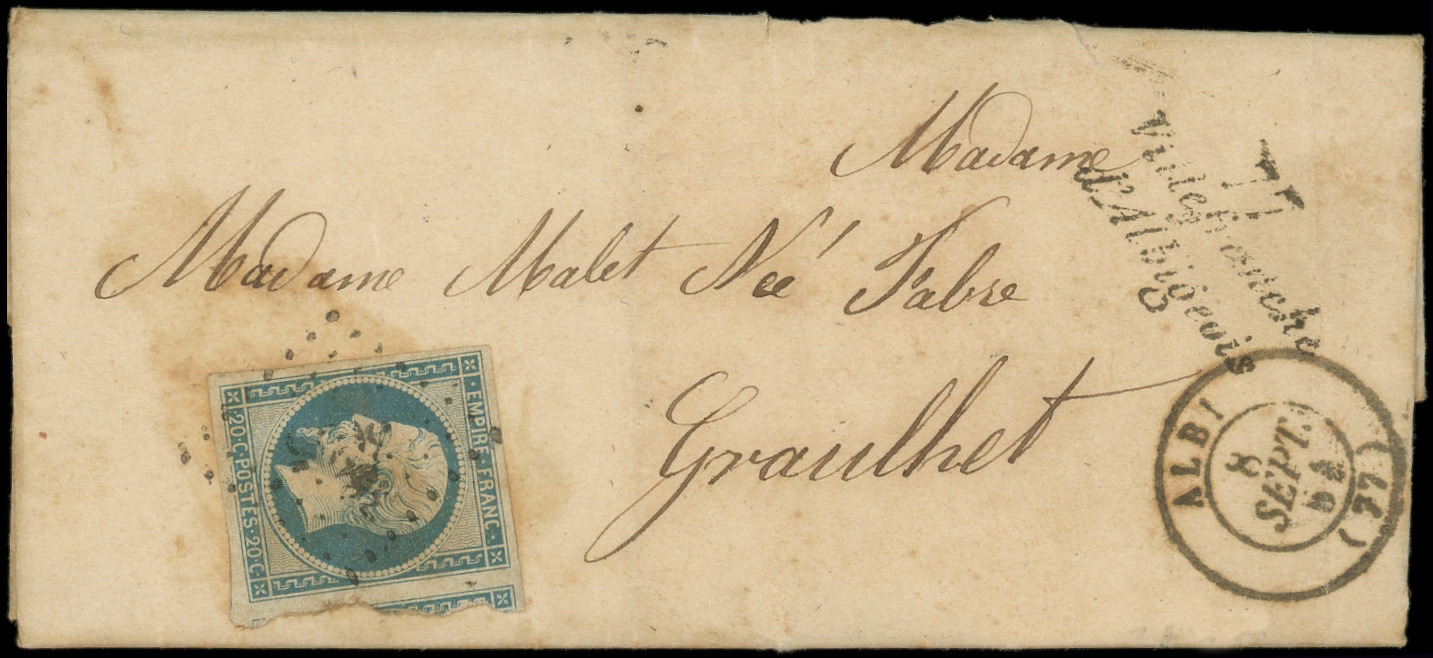 77
Villefranche
d'Albigeois
Madame
Madame Malet Neé Fabre
Graulhet
EMPIRE · FRANC ·
· 20 · C · POSTES · 20 · C ·
ALBI
8
SEPT.
54
(77)